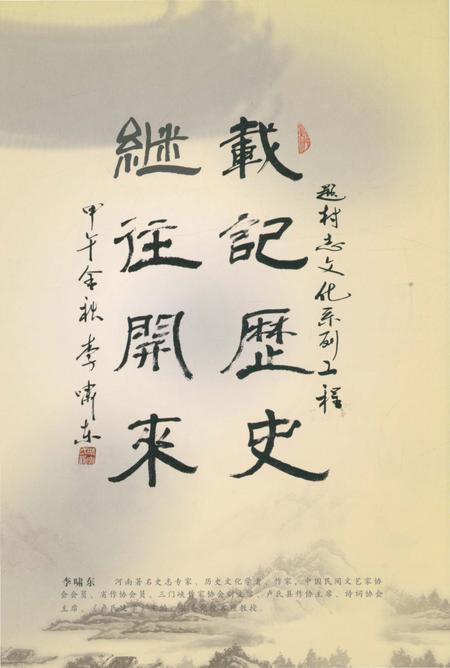 题村志文化系列工程
載記歷史
継往開來
甲午金秋 李啸东
李啸东 河南著名史志专家、历史文化学者、作家、中国民间文艺家协
会会员、省作协会员、三门峡作家协会副主席、卢氏县作协主席、诗词协会
主席、
教授。